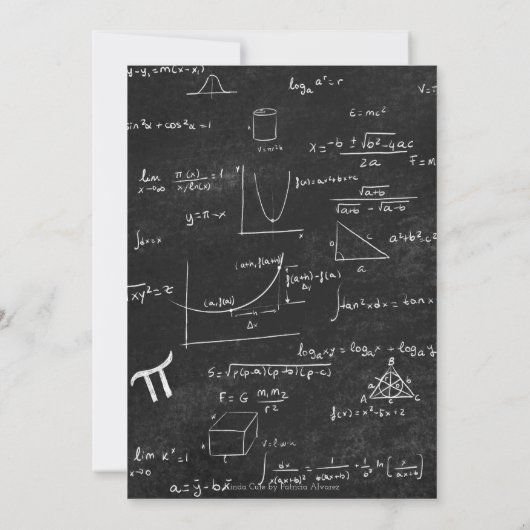 y-y₁=m(x-x₁)
logₐ aʳ=r
V=
E=mc²
sin²α+cos²α=1
V=πr²h
x=(-b±√(b²-4ac))/2a
F=
lim x→∞ π(x)/(x/ln(x))=1
f(x)=ax²+bx+c
√(a+b)/(√(a+b)-√(a-b))
y
x
y=π-x
∫dx=x
b
c
a
a²+b²=c²
(a+h, f(a+h))
f(a+h)-f(a)
Δy
√xy²=z
(a, f(a))
h
Δx
∫tan²xdx=tanx
logₐxy=logₐx+logₐy
S=√(p(p-a)(p-b)(p-c))
π
F=G m₁m₂/r²
B
a
c
A
c
C
f(x)=x²-5x+2
V=l·w·h
lim x→0 kˣ=1
∫dx/(x(ax+b)²)=1/(b(ax+b))+1/b² ln[x/(ax+b)]
a=ȳ-bx̄
Kinda Cute by Patricia Alvarez